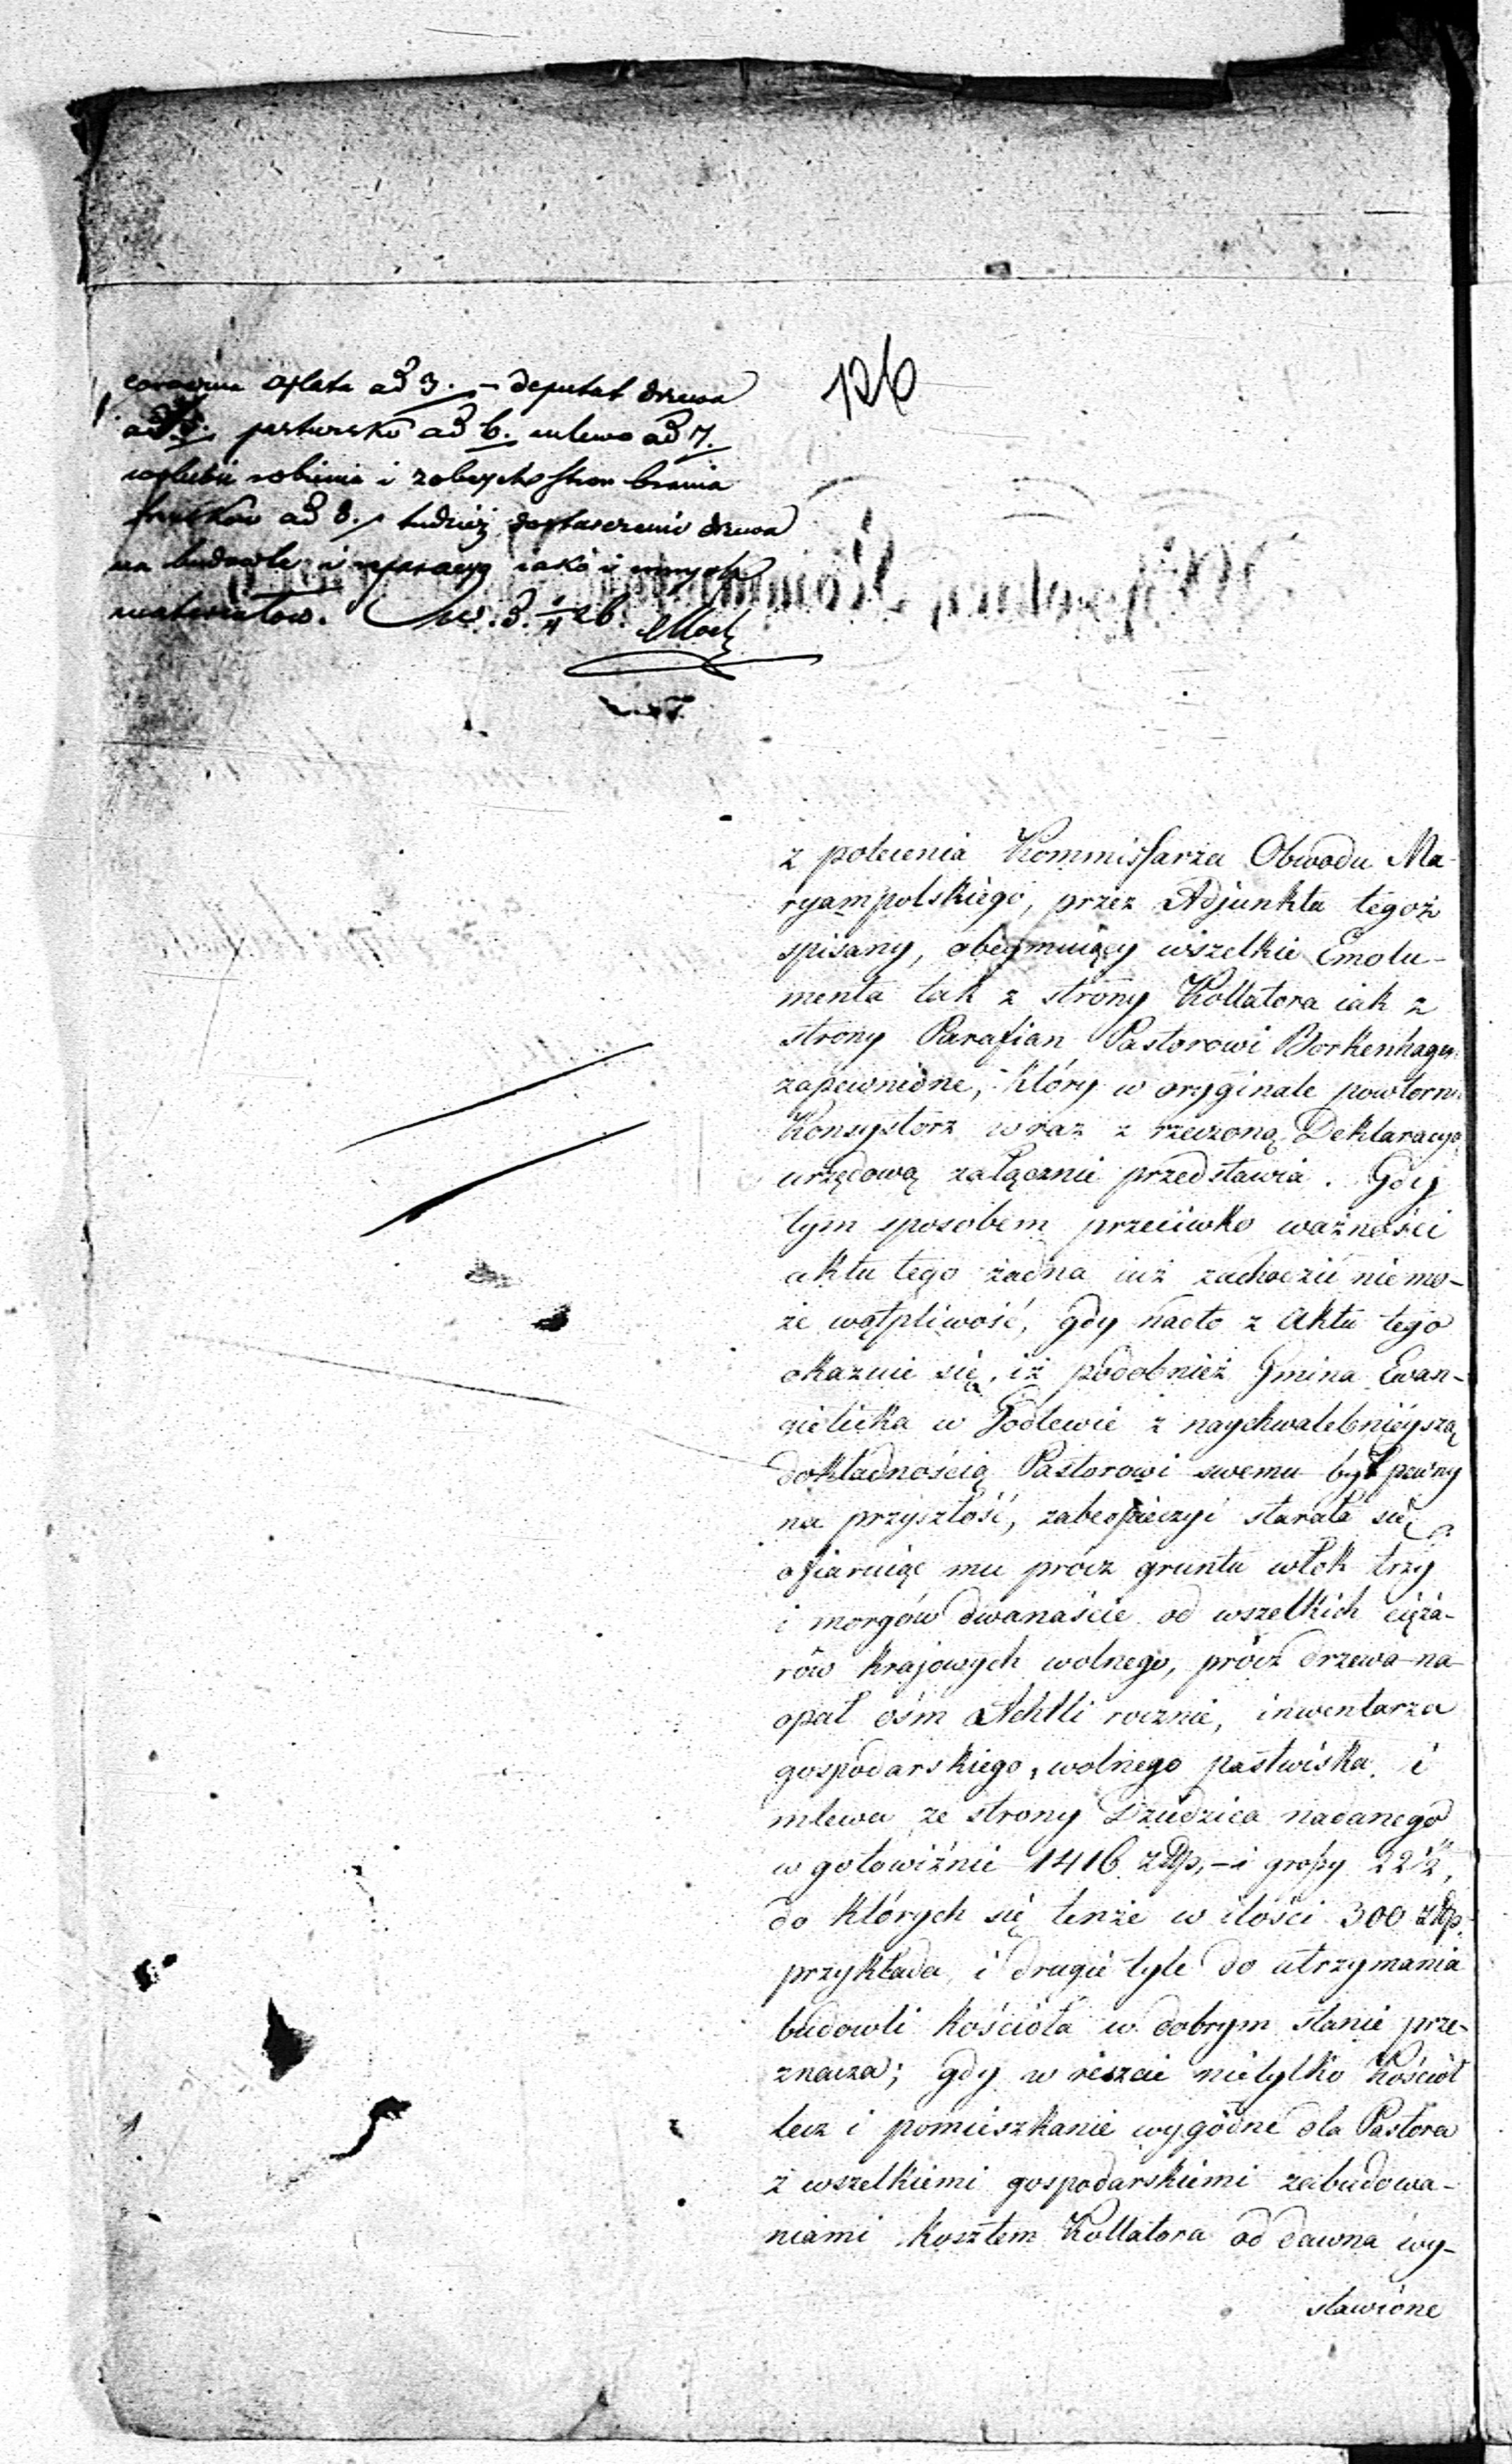 opłata ad 3. – deputat drzewa
ad pastwisko ad 6. mlewo ad 7.
robienia i brania
ad 8. tudzież dostarczenie drzewa
na budowle i reparacyą iako i innych
materiałow.
126
z polecenia Kommissarza Obwodu Ma-
ryampolskiego, przez Adjunkta tegoż
spisany, obeymuiący wszelkie Emolu-
menta tak z strony Kollatora iak z
strony Parafian Pastorowi Borkenhagen
zapewnione, który w oryginale powtorni
Konsystorz wraz z rzeczoną Deklaracyą
urzędową załącznie przedstawia. Gdy
tym sposobem przeciwko ważności
aktu tego żadna iuż zachodzić niemo-
że wątpliwość, gdy nadto z Aktu tego
okazuie się, iż podobnież Gmina Ewan-
gielicka w Godlewie z naychwalebnieyszą
dokładnością Pastorowi swemu byt pewny
na przyszłość, zabezpieczyć starała się
ofiaruiąc mu procz gruntu włok trzy
i morgów dwanaście od wszelkich cięża-
rów krajowych wolnego, prócz drzewa na
opał ośm Achtli rocznie, inwentarza
gospodarskiego, wolnego pastwiska, i
mlewa ze strony Dziedzica nadanego
w gotowiźnie 1416 złp, – i groszy 22½,
do których się tenże w ilości 300 złp.
przykłada, i drugie tyle do utrzymania
budowli kościoła w dobrym stanie prze-
znacza; gdy w reszcie nietylko Kościół
lecz i pomieszkanie wygódne dla Pastora
z wszelkiemi gospodarskiemi zabudowa-
niami kosztem Kollatora od dawna wy-
stawione